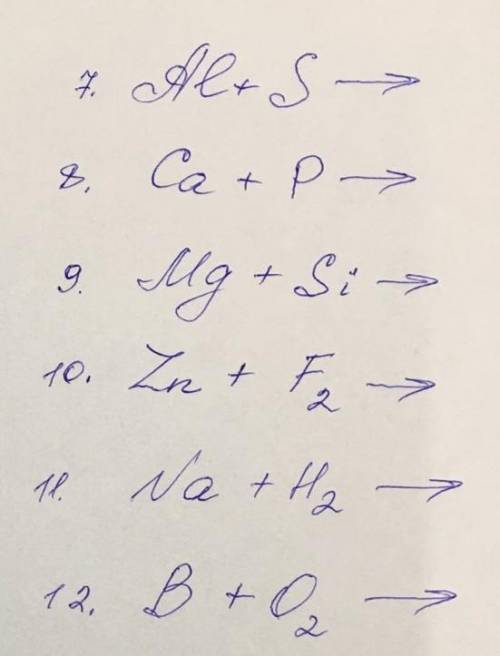 7. Al + S →
8. Ca + P →
9. Mg + Si →
10. Zn + F₂ →
11. Na + H₂ →
12. B + O₂ →